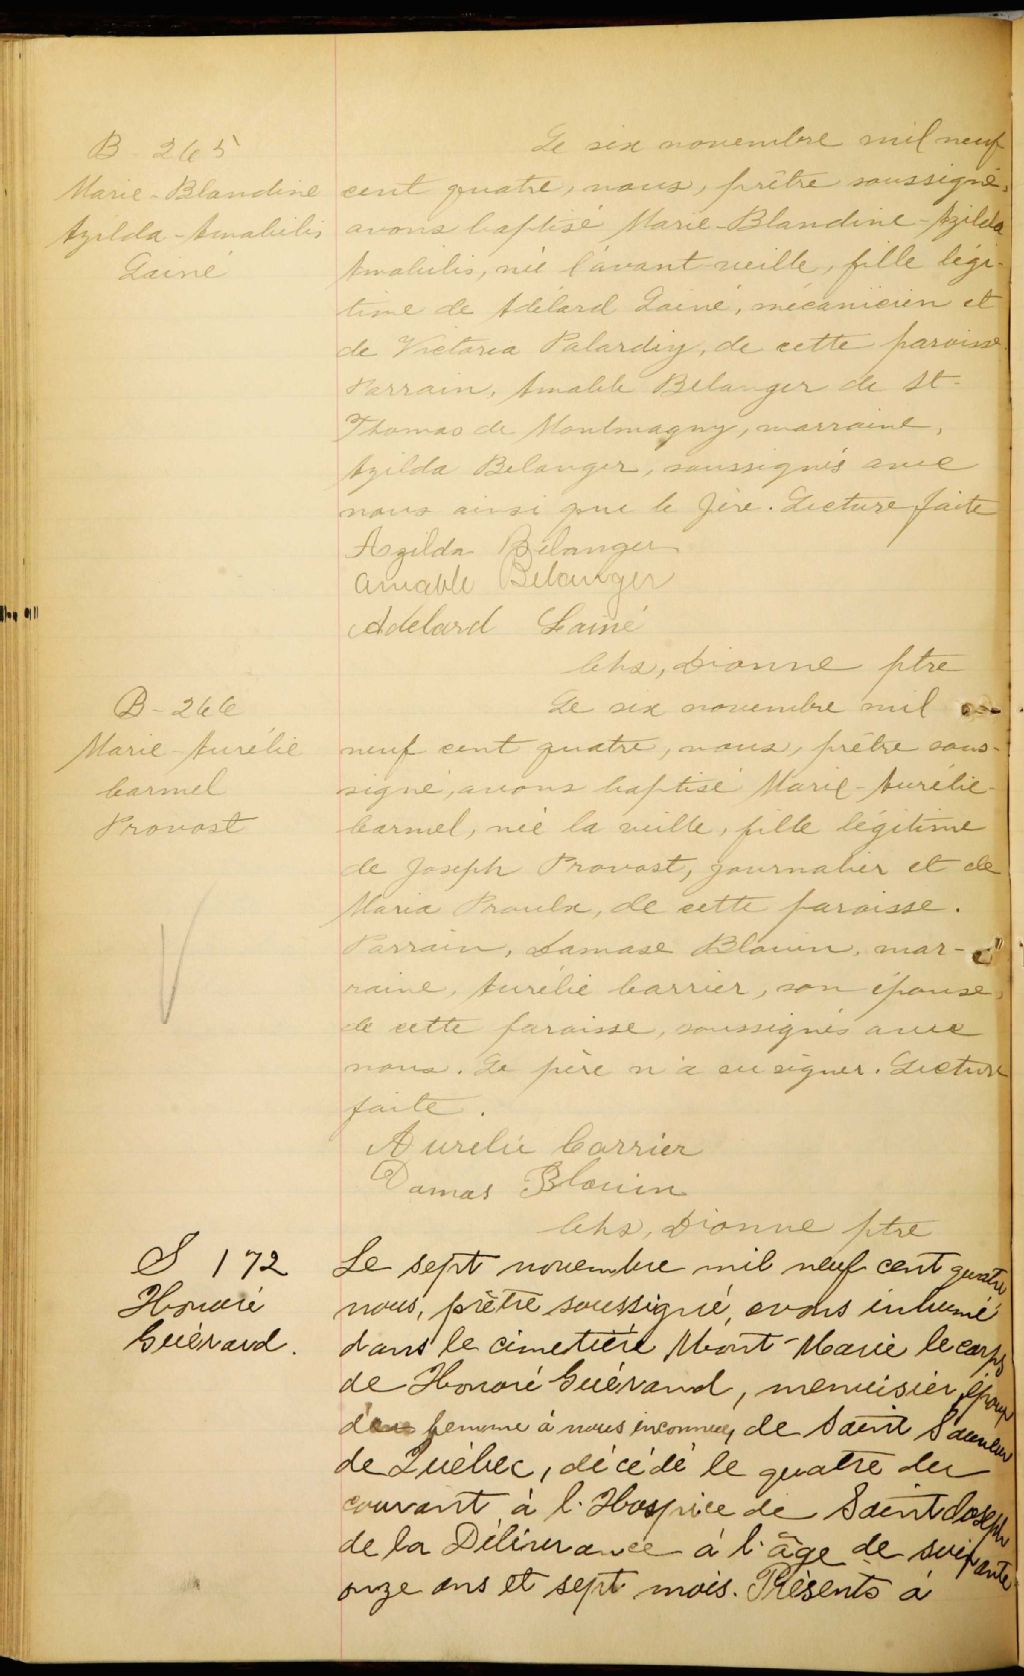 B - 265
Marie-Blandine
Azilda-Amabilis
Lainé
Le six novembre mil neuf
cent quatre, nous, prêtre soussigné,
avons baptisé Marie-Blandine-Azilda
Amabilis, née l'avant-veille, fille légi-
time de Adélard Lainé, mécanicien et
de Victoria Palardy, de cette paroisse.
Parrain, Amable Bélanger de St-
Thomas de Montmagny, marraine,
Azilda Belanger, soussignés avec
nous ainsi que le père. Lecture faite
Azilda Bélanger
Amable Belanger
Adélard Lainé
Chs, Dionne ptre
B - 266
Marie-Aurélie
Carmel
Provost
Le six novembre mil
neuf cent quatre, nous, prêtre sous-
signé, avons baptisé Marie-Aurélie-
Carmel, née la veille, fille légitime
de Joseph Provost, journalier et de
Maria Proulx, de cette paroisse.
Parrain, Damase Blouin, mar-
raine, Aurélie Carrier, son épouse,
de cette paroisse, soussignés avec
nous. Le père n'a su signer. Lecture
faite.
Aurelie Carrier
Damas Blouin
Chs, Dionne ptre
S 172
Honoré
Guérard.
Le sept novembre mil neuf cent quatre
nous, prêtre soussigné, avons inhumé
dans le cimetière Mont-Marie le corps
de Honoré Guérard, menuisier, époux
d'une femme à nous inconnue, de Saint Sauveur
de Québec, décédé le quatre du
courant à l'Hospice de Saint Joseph
de la Délivrance à l'âge de soixante
onze ans et sept mois. Présents à